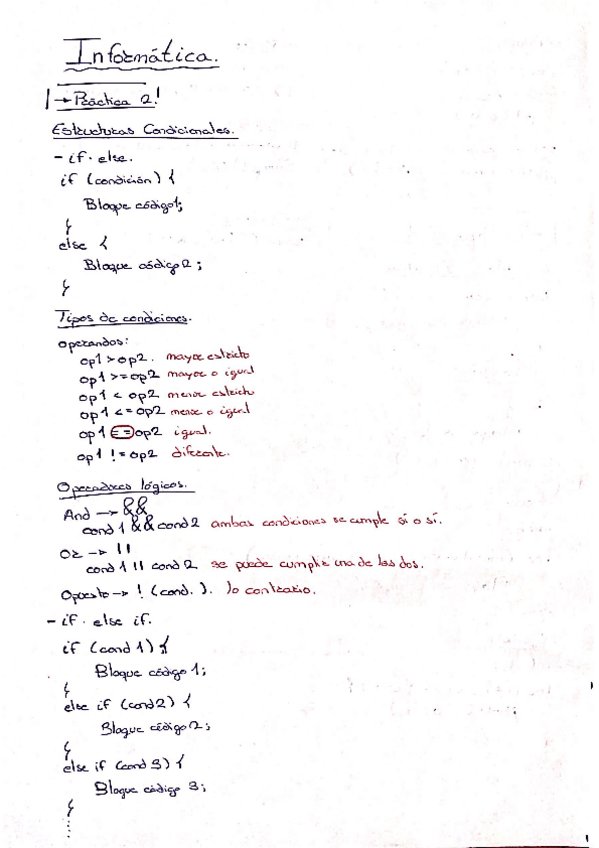 Informática.
|→ Práctica 2!
Estructuras Condicionales.
- if. else.
if (condición) {
Bloque código1;
}
else {
Bloque código2;
}
Tipos de condiciones.
operandos:
op1 > op2. mayor estricto
op1 >= op2 mayor o igual
op1 < op2 menor estricto
op1 <= op2 menor o igual
op1 == op2 igual.
op1 != op2 diferente.
Operadores lógicos.
And → &&
cond 1 && cond 2 ambas condiciones se cumple sí o sí.
Or → ||
cond 1 || cond 2 se puede cumplir una de las dos.
Opuesto → ! (cond.). lo contrario.
- if. else if.
if (cond 1) {
Bloque código 1;
}
else if (cond2) {
Bloque código 2;
}
else if (cond 3) {
Bloque código 3;
}
⋮
1